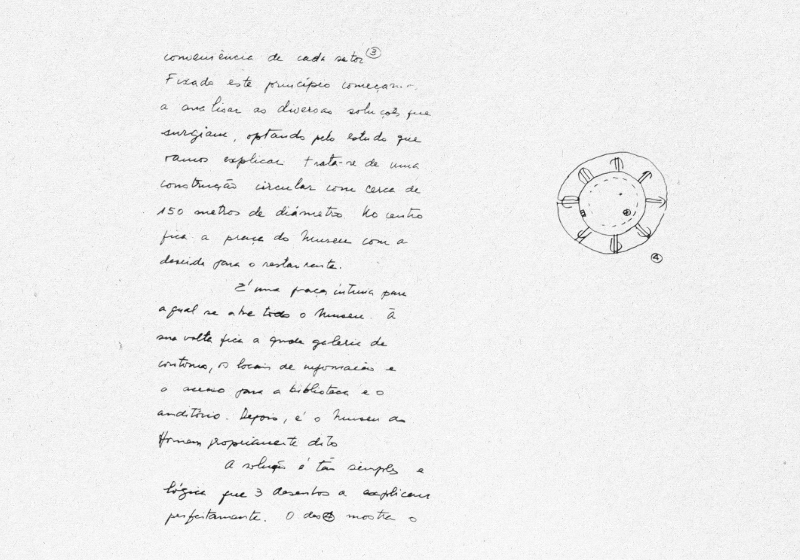 conveniência de cada setor ③
Fixado este princípio começamos
a analisar as diversas soluções que
surgiam, optando pelo estudo que
vamos explicar trata-se de uma
construção circular com cerca de
150 metros de diâmetro No centro
fica a praça do Museu com a
descida para o restaurante.
É uma praça interna para
a qual se abre todo o Museu. À
sua volta fica a grande galeria de
contorno, os locais de informação e
o acesso para a biblioteca e o
auditório. Depois, é o Museu do
Homem propriamente dito
A solução é tão simples e
lógica que 3 desenhos a explicam
perfeitamente. O des ④ mostra o
④